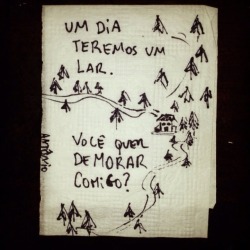 UM DIA
TEREMOS UM
LAR.
VOCÊ QUER
DEMORAR
COMIGO?
ANTÔNIO